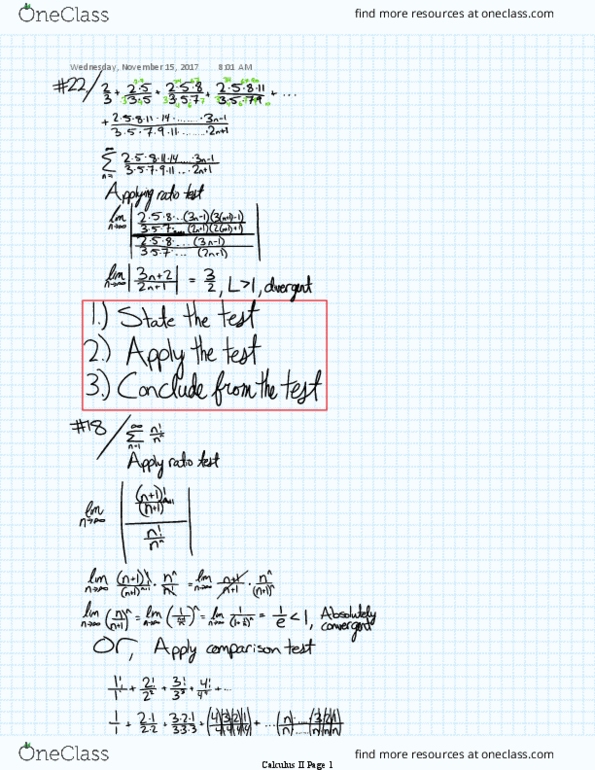 OneClass
find more resources at oneclass.com
Wednesday, November 15, 2017 8:01 AM
#22/ 2/3 + 2·5/3·5 + 2·5·8/3·5·7 + 2·5·8·11/3·5·7·9 + ...
+ 2·5·8·11·14.......3n-1/3·5·7·9·11.......2n+1
∞ Σ n= 2·5·8·11·14...3n-1/3·5·7·9·11...2n+1
Applying ratio test
lim n→∞ | 2·5·8...(3n-1)(3(n+1)-1)/3·5·7...(2n+1)(2(n+1)+1)
2·5·8...(3n-1)/3·5·7...(2n+1) |
lim n→∞ | 3n+2/2n+1 | = 3/2, L>1, divergent
1.) State the test
2.) Apply the test
3.) Conclude from the test
#18/ ∞ Σ n=1 n!/nⁿ
Apply ratio test
lim n→∞ | (n+1)!/(n+1)ⁿ⁺¹
n!/nⁿ |
lim n→∞ (n+1)!/(n+1)ⁿ⁺¹ · nⁿ/n! = lim n→∞ n+1/n+1 · nⁿ/(n+1)ⁿ
lim n→∞ (n/n+1)ⁿ = lim n→∞ = lim n→∞ = 1/e < 1, Absolutely convergent
Or, Apply comparison test
1!/1¹ + 2!/2² + 3!/3³ + 4!/4⁴ + ...
1/1 + 2·1/2·2 + 3·2·1/3·3·3 + (4/4)(3/4)(2/4)(1/4) + ...
OneClass
find more resources at oneclass.com
Calculus II Page 1